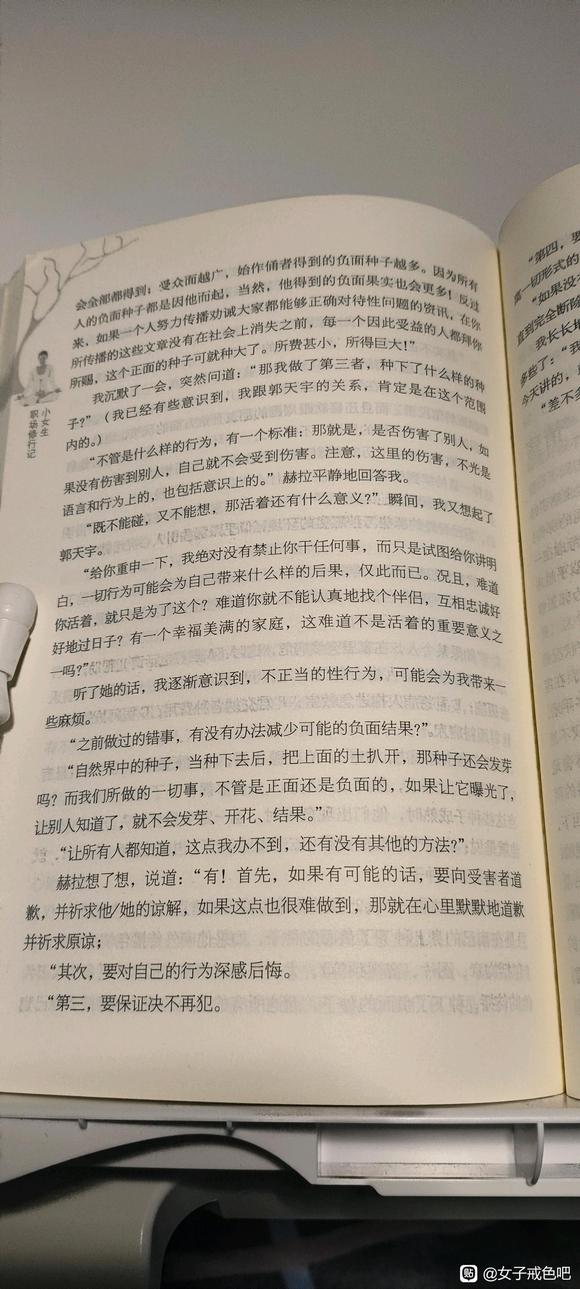 会全部都得到；受众面越广，始作俑者得到的负面种子越多。因为所有
人的负面种子都是因他而起，当然，他得到的负面果实也会更多！反过
来，如果一个人努力传播劝诫大家都能够正确对待性问题的资讯，在你
所传播的这些文章没有在社会上消失之前，每一个因此受益的人都拜你
所赐，这个正面的种子可就种大了。所费甚小，所得巨大！”
我沉默了一会，突然问道：“那我做了第三者，种下了什么样的种
子？”（我已经有些意识到，我跟郭天宇的关系，肯定是在这个范围
内的。）
“不管是什么样的行为，有一个标准：那就是，是否伤害了别人，如
果没有伤害到别人，自己就不会受到伤害。注意，这里的伤害，不光是
语言和行为上的，也包括意识上的。”赫拉平静地回答我。
“既不能碰，又不能想，那活着还有什么意义？”瞬间，我又想起了
郭天宇。
“给你重申一下，我绝对没有禁止你干任何事，而只是试图给你讲明
白，一切行为可能会为自己带来什么样的后果，仅此而已。况且，难道
你活着，就只是为了这个？难道你就不能认真地找个伴侣，互相忠诚好
好地过日子？有一个幸福美满的家庭，这难道不是活着的重要意义之
一吗？”
听了她的话，我逐渐意识到，不正当的性行为，可能会为我带来一
些麻烦。
“之前做过的错事，有没有办法减少可能的负面结果？”
“自然界中的种子，当种下去后，把上面的土扒开，那种子还会发芽
吗？而我们所做的一切事，不管是正面还是负面的，如果让它曝光了，
让别人知道了，就不会发芽、开花、结果。”
“让所有人都知道，这点我办不到，还有没有其他的方法？”
赫拉想了想，说道：“有！首先，如果有可能的话，要向受害者道
歉，并祈求他/她的谅解，如果这点也很难做到，那就在心里默默地道歉
并祈求原谅；
“其次，要对自己的行为深感后悔。
“第三，要保证决不再犯。
小女生
职场修行记
“第四，要
离一切形式的
“如果没有
直到完全断除
我长长地
多些了：“我
今天讲的，
“差不多
贴 @女子戒色吧